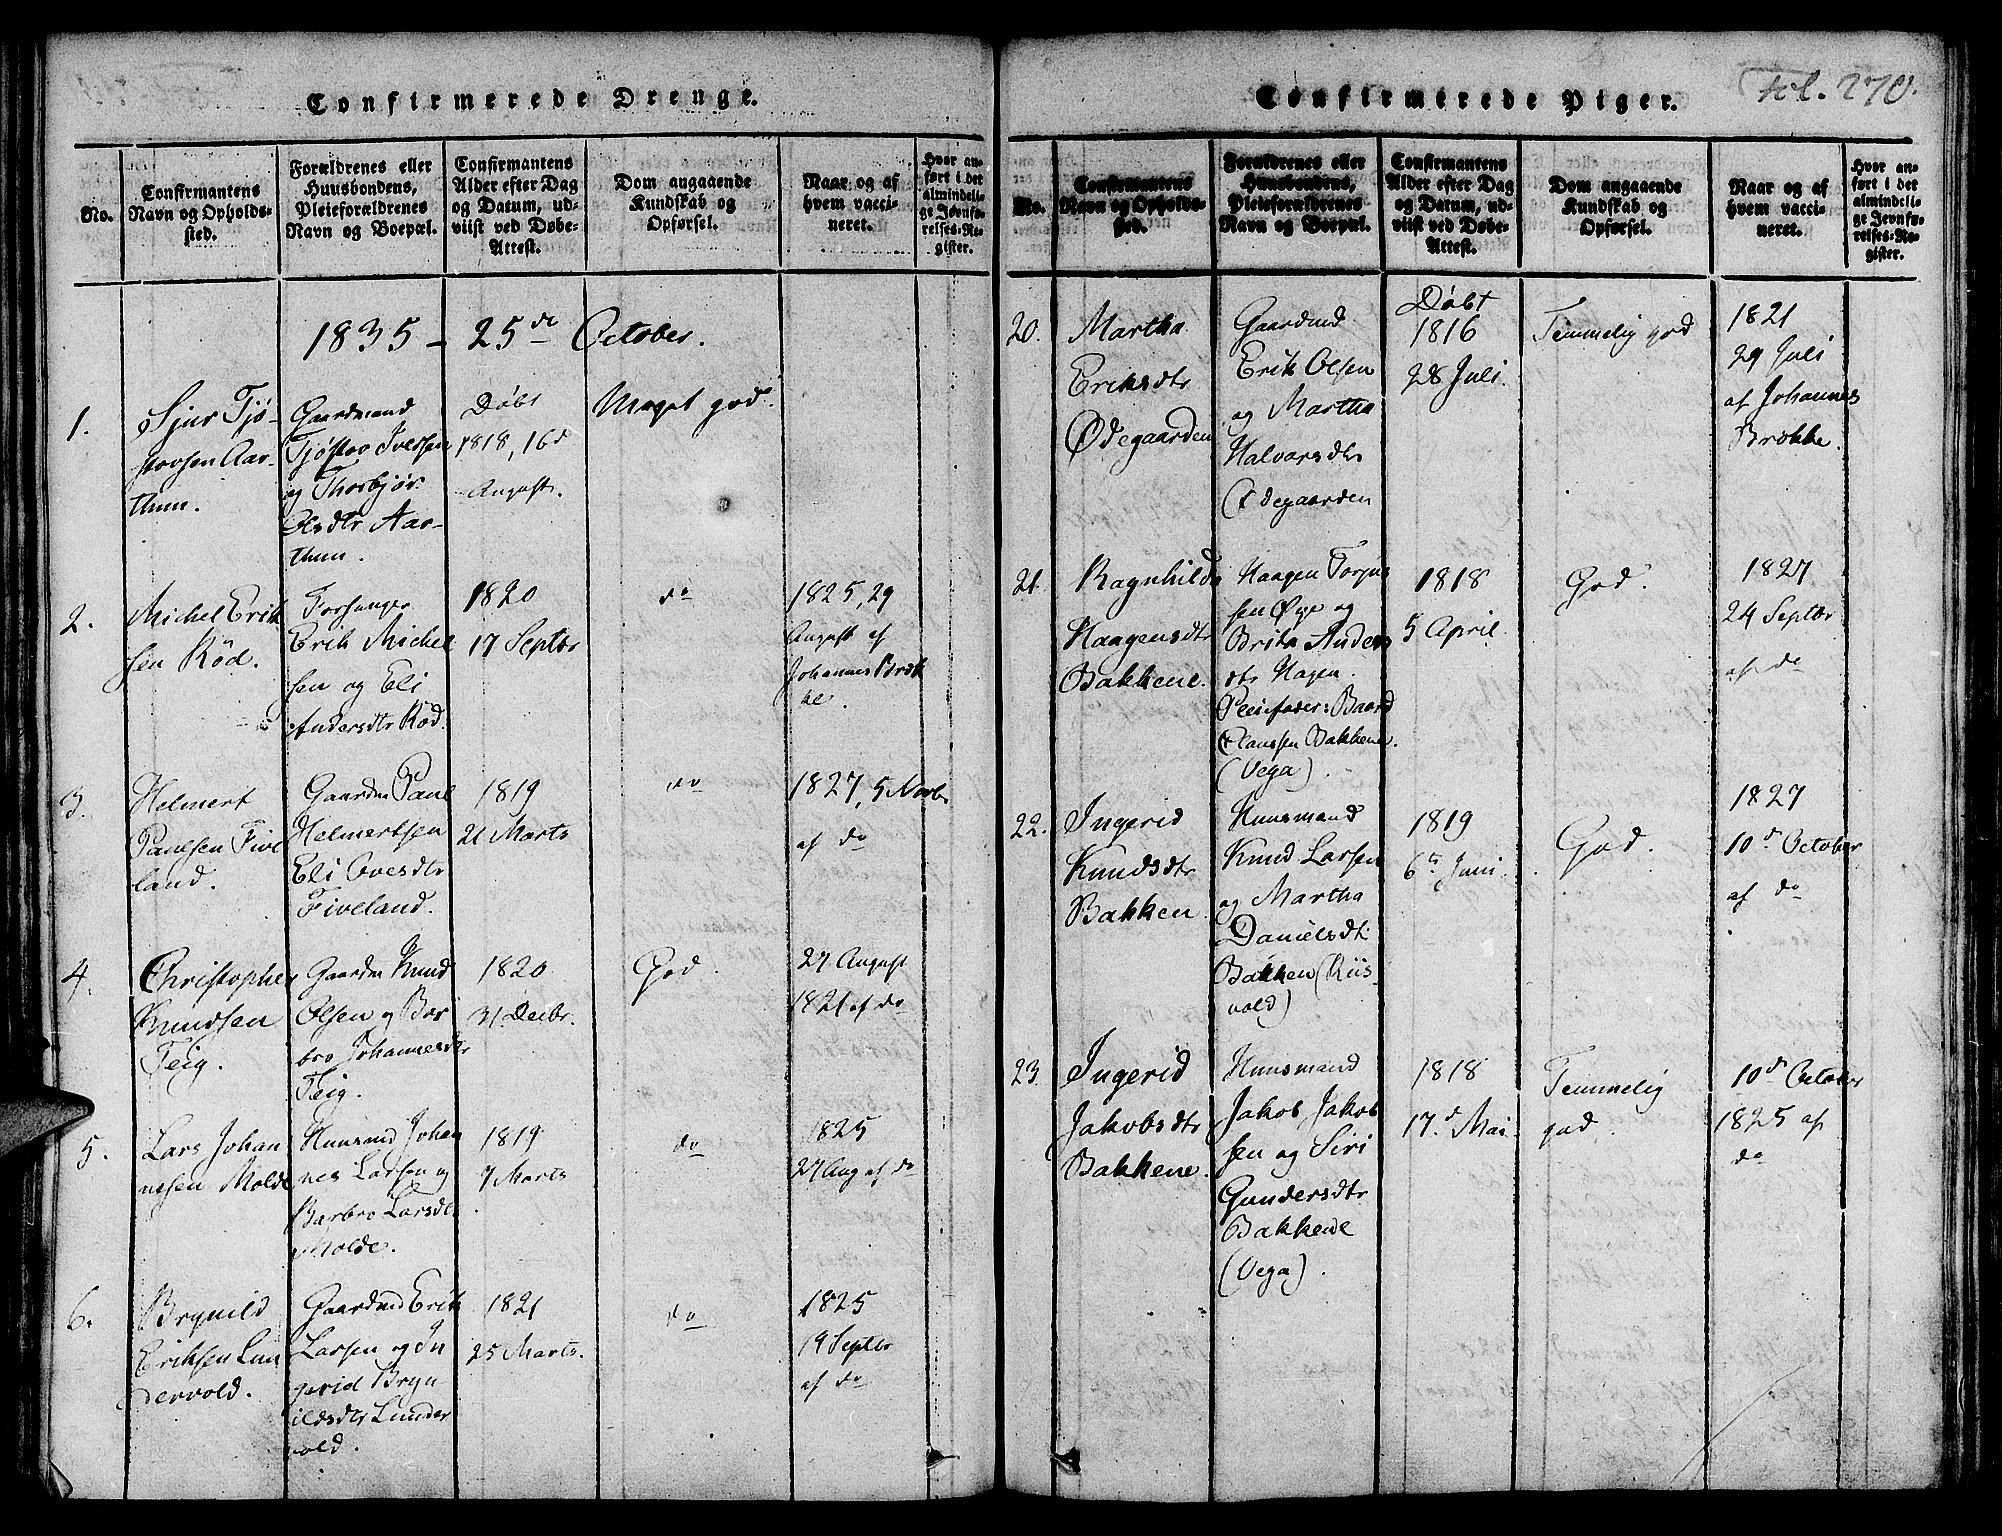 Confirmerede Drenge.
No.
Confirmantens
Navn og Opholds-
sted.
Forældrenes eller
Huusbondens,
Pleieforældrenes
Navn og Boepæl.
Confirmantens
Alder efter Dag
og Datum, ud-
viist ved Døbe-
Attest.
Dom angaaende
Kundskab og
Opførsel.
Naar og af
hvem vacci-
neret.
Hvor an-
ført i det
almindeli-
ge Jevnfø-
relses-Re-
gister.
1835 - 25de October.
1.
Sjur Tjø-
stovsen Aar-
thun.
Gaardmand
Tjøstov Iversen
og Thorbjør
Olsdtr Aar-
thun.
Døbt
1818, 16d
August.
Meget god.
2.
Michel Erik
sen Röd.
Forsanger
Erik Michel
sen og Eli
Andersdtr Röd.
1820
17 Septbr
do
1825, 29
August af
Johannes Bræk
ke.
3.
Helmert
Paulsen Five
land.
Gaardm Paul
Helmertsen
Eli Ovesdtr
Fiveland.
1819
21 Marts
do
1827, 5 Novbr
af do
4.
Christopher
Knudsen
Teig.
Gaardm Knud
Olsen og Bar
bro Johannesdtr
Teig.
1820
31 Decbr.
God.
27 August
1821 af do
5.
Lars Johan
nesen Molde
Huusmd Johan
nes Larsen og
Barbro Larsdtr
Molde.
1819
7 Marts
do
1825
27 Aug af do
6.
Brynild
Eriksen Lun
dervold.
Gaardmd Erik
Larsen og In
gerid Bryn
ildsdtr Lunder
vold.
1821
25 Marts.
do
1825
19 Septbr
af do
Confirmerede Piger.
Fol. 270.
No.
Confirmantens
Navn og Opholds-
sted.
Forældrenes eller
Huusbondens,
Pleieforældrenes
Navn og Boepæl.
Confirmantens
Alder efter Dag
og Datum, ud-
viist ved Døbe-
Attest.
Dom angaaende
Kundskab og
Opførsel.
Naar og af
hvem vacci-
neret.
Hvor an-
ført i det
almindeli-
ge Jevnfø-
relses-Re-
gister.
20.
Martha
Eriksdtr
Ødegaarden
Gaardmd
Erik Olsen
og Martha
Halvorsdtr
Ødegaarden
Døbt
1816
28 Juli.
Temmelig god
1821
29 Juli
af Johannes
Brække.
21.
Ragnhild
Haagensdtr
Bakkene.
Haagen Torjus
sen Øye og
Brita Anders
dtr Hagen.
Pleiefader: Baard
Clanssen Bakkene.
(Vega).
1818
5 April.
God.
1827
24 Septbr
af do
22.
Ingerid
Knudsdtr
Bakken
Huusmand
Knud Larsen
og Martha
Danielsdt:
Bakken (Riis-
vold)
1819
6te Juni.
God.
1827
10d October
af do
23.
Ingerid
Jakobsdtr
Bakkene.
Huusmand
Jakob Jakob
sen og Siri
Gundersdtr
Bakkene
(Vega).
1818
17d Mai.
Temmelig
god.
10d October
1825 af
do